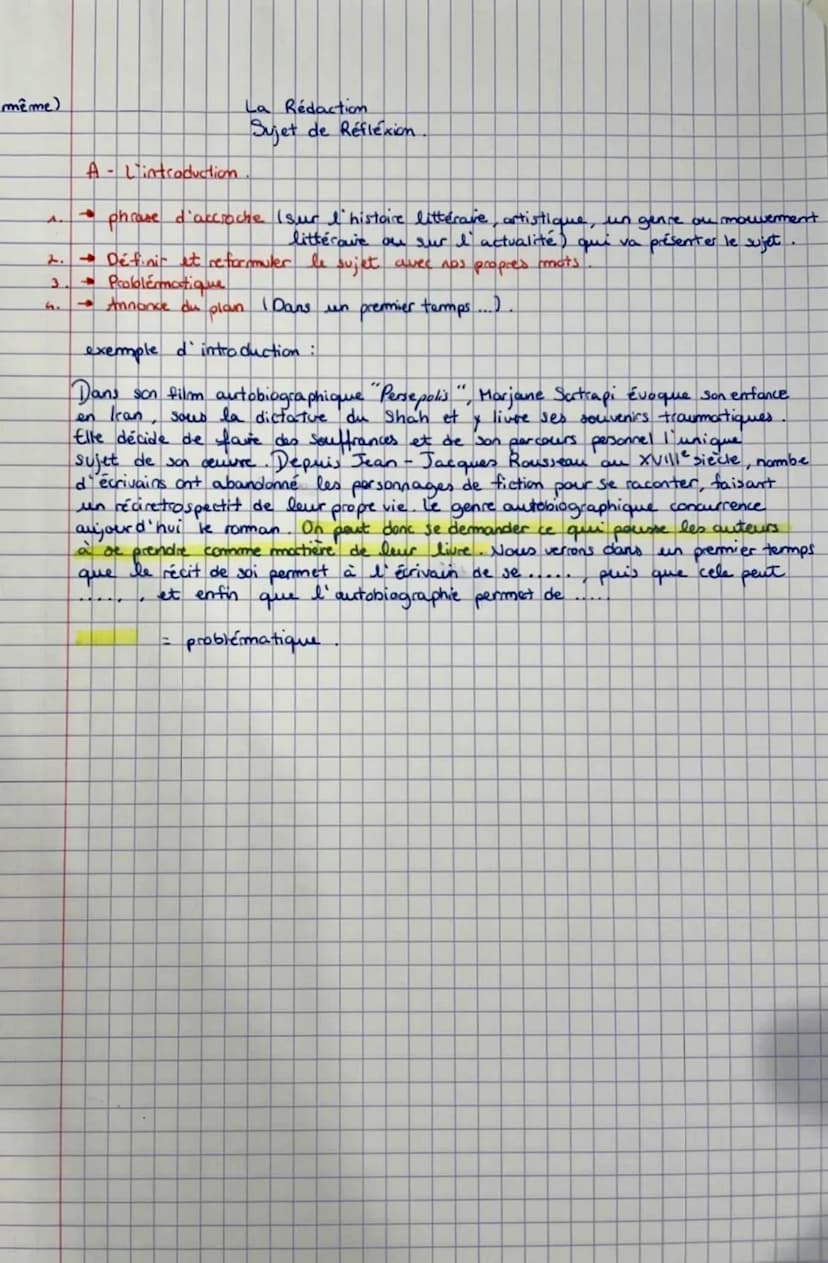 même)
La Rédaction
Sujet de Réfléxion.
A - L'introduction.
1. → phrase d'accroche (sur l'histoire littéraire, artistique, un genre ou mouvement
littéraire ou sur l'actualité) qui va présenter le sujet.
2. → Définir et reformuler le sujet avec nos propres mots.
3. → Problématique
4. → Annonce du plan (Dans un premier temps ...).
exemple d'introduction :
Dans son film autobiographique "Persepolis", Marjane Satrapi évoque son enfance
en Iran, sous la dictatue du Shah et y livre ses souvenirs traumatiques.
Elle décide de faire des souffrances et de son parcours personnel l'unique
sujet de son œuvre. Depuis Jean-Jacques Rousseau au XVIIIe siècle, nombe
d'écrivains ont abandonné les personnages de fiction pour se raconter, faisant
un réciretrospectif de leur propre vie. Le genre autobiographique concurrence
aujourd'hui le roman. On peut donc se demander ce qui pousse les auteurs
à se prendre comme matière de leur livre. Nous verrons dans un premier temps
que le récit de soi permet à l'écrivain de se ....., puis que cela peut
....., et enfin que l'autobiographie permet de .....
= problématique.